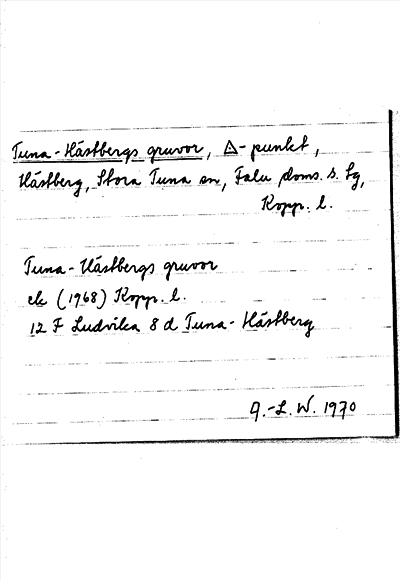 Tuna-Hästbergs gruvor, △-punkt,
Hästberg, Stora Tuna sn, Falu doms. s. tg,
Kopp. l.
Tuna-Hästbergs gruvor
ek (1968) Kopp. l.
12 F Ludvika 8 d Tuna-Hästberg
A.-L. W. 1970